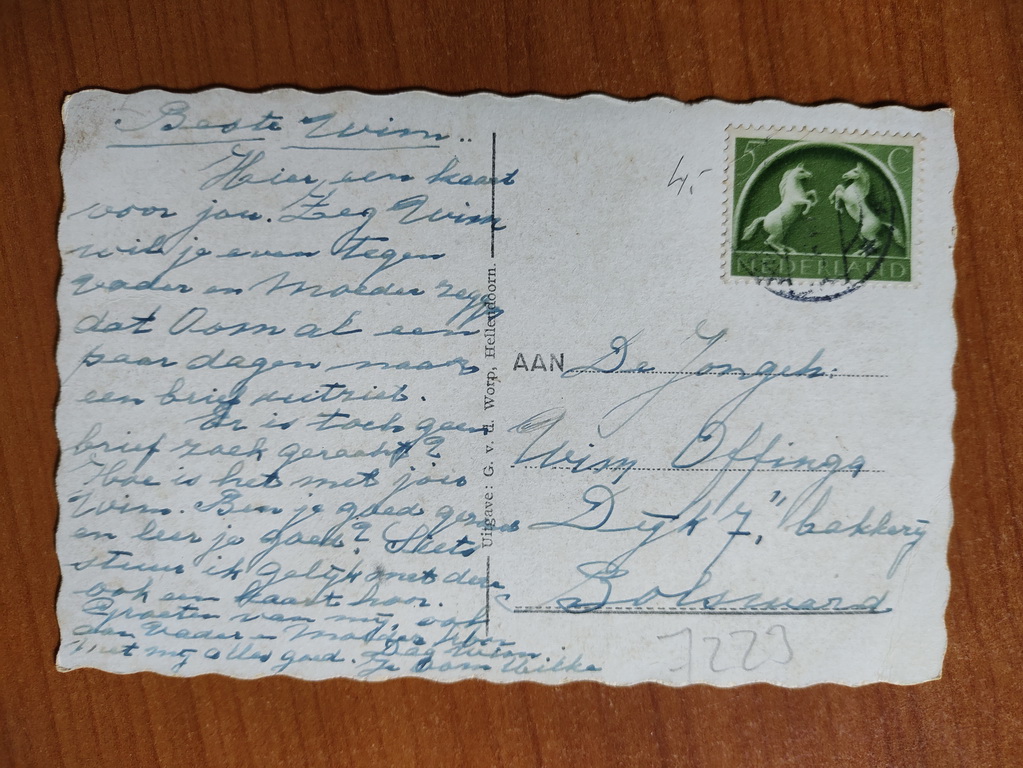 Beste Wim..
Hier een kaart
voor jou. Zeg Wim
wil je even tegen
Vader en Moeder zeggen
dat Oom al een
paar dagen naar
een brief uitziet.
Er is toch geen
brief zoek geraakt?
Hoe is het met jou
Wim. Ben je goed gezond
en leer je goed? Siets
stuur ik gelijk met deze
ook een kaart hoor.
Groeten van mij, ook
aan Vader en Moeder hoor
met mij alles goed. Dag Wim.
Je Oom Wilke
Uitgave: G. v. d. Worp, Hellendoorn.
4,-
5 C
NEDERLAND
AAN De Jongeh.
Wim Offinga
Dijk 7, " bakkerij
Bolsward
7223